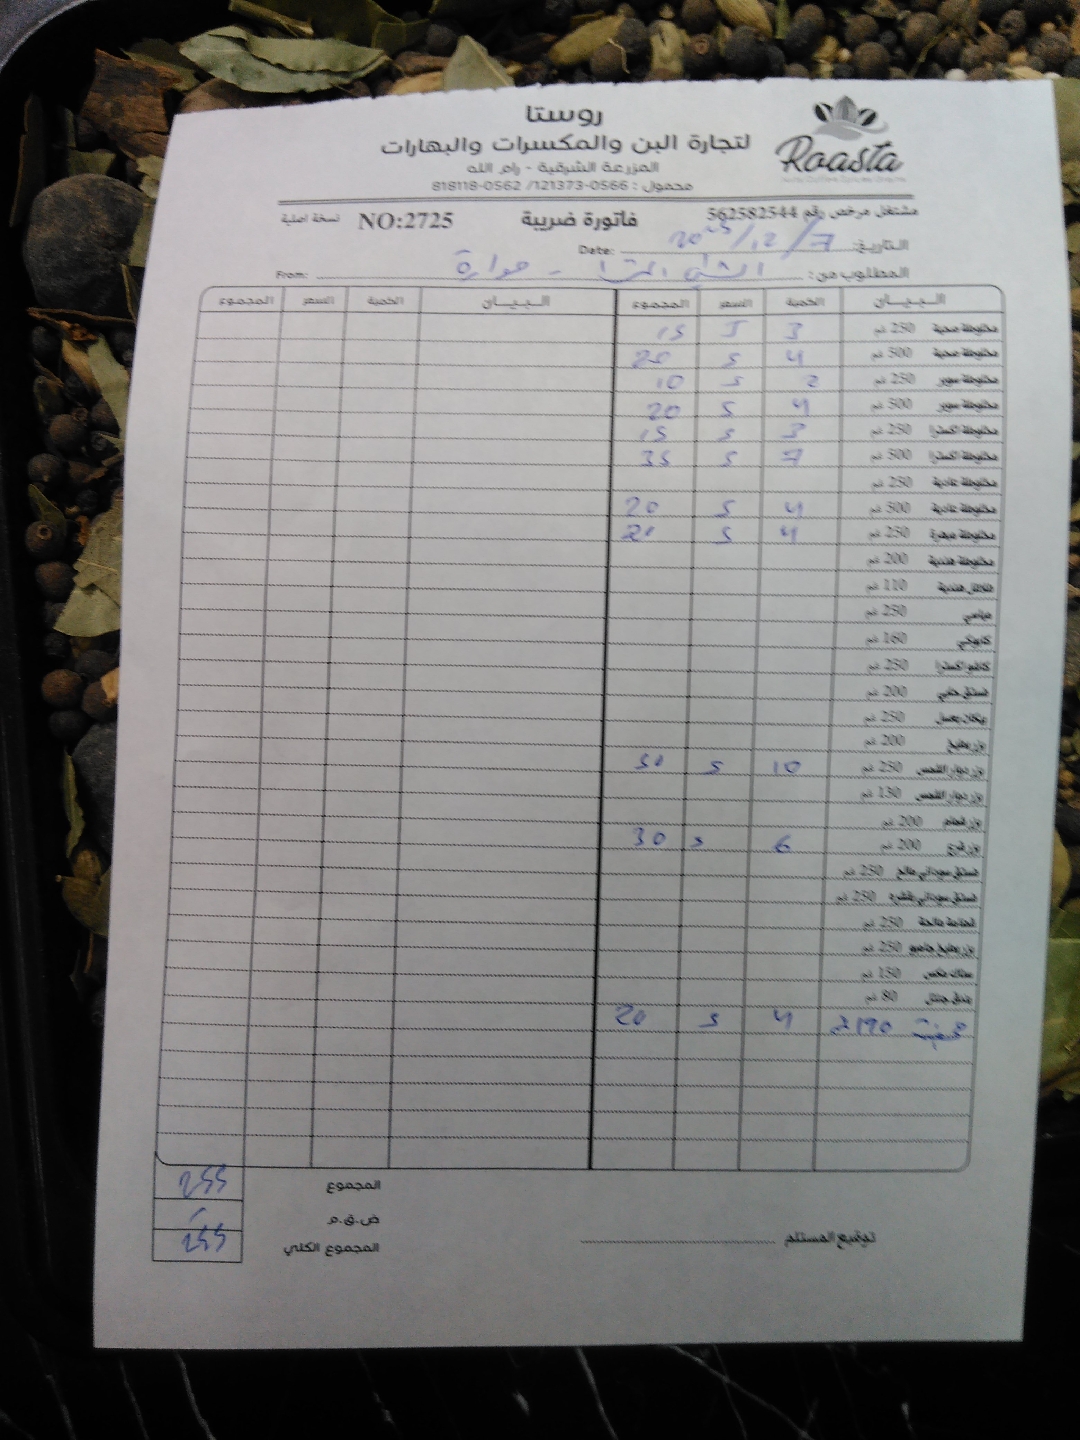 روستا
لتجارة البن والمكسرات والبهارات
المزرعة الشرقية - رام الله
محمول : 0566-121373/ 0562-818118
Roasta
مشتغل مرخص رقم 562582544 فاتورة ضريبة NO:2725 نسخة اصلية
التاريخ: 2025/12/7 Date:
المطلوب من: حوارة From:
البيـــان الكمية السعر المجموع البيـــان الكمية السعر المجموع
مخلوطة صحية 250 غم 3 5 15
مخلوطة صحية 500 غم 4 5 20
مخلوطة سوبر 250 غم 2 5 10
مخلوطة سوبر 500 غم 4 5 20
مخلوطة اكسترا 250 غم 3 5 15
مخلوطة اكسترا 500 غم 7 5 35
مخلوطة عادية 250 غم
مخلوطة عادية 500 غم 4 5 20
مخلوطة مبهرة 250 غم 4 5 20
مخلوطة هندية 200 غم
فلافل هندية 110 غم
ميامي 250 غم
كابوكي 160 غم
كاشو اكسترا 250 غم
فستق حلبي 200 غم
بيكان بعسل 250 غم
بزر بطيخ 200 غم
بزر دوار الشمس 250 غم 10 5 50
بزر دوار الشمس 130 غم
بزر شمام 200 غم
بزر قرع 200 غم 6 5 30
فستق سوداني مالح 250 غم
فستق سوداني بقشره 250 غم
قضامة مالحة 250 غم
بزر بطيخ جامبو 250 غم
سناك مكس 150 غم
80 غم
190 4 5 20
المجموع 255
ض.ق.م
المجموع الكلي 255
توقيع المستلم